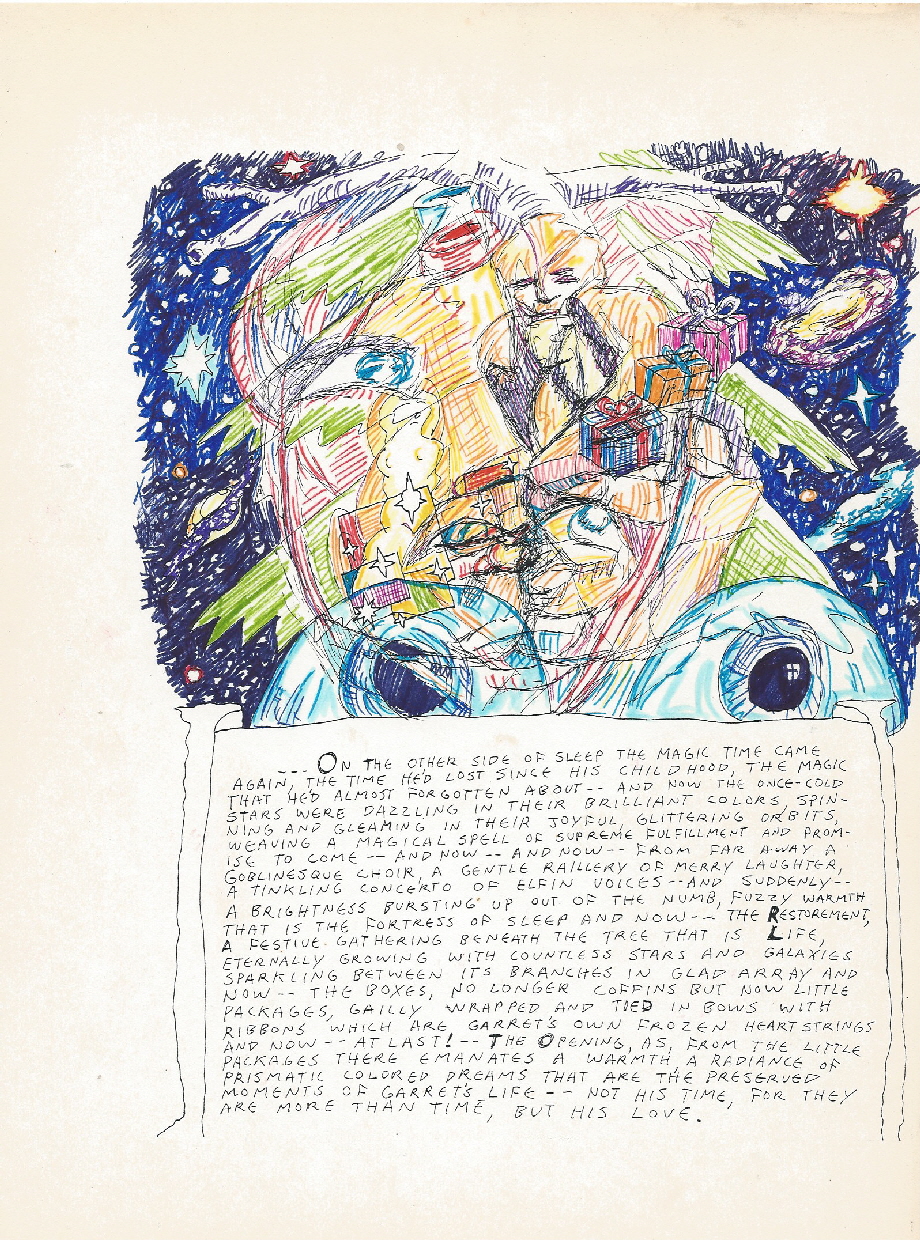 --- ON THE OTHER SIDE OF SLEEP THE MAGIC TIME CAME
AGAIN, THE TIME HE'D LOST SINCE HIS CHILDHOOD, THE MAGIC
THAT HE'D ALMOST FORGOTTEN ABOUT -- AND NOW THE ONCE-COLD
STARS WERE DAZZLING IN THEIR BRILLIANT COLORS, SPIN-
NING AND GLEAMING IN THEIR JOYFUL, GLITTERING ORBITS,
WEAVING A MAGICAL SPELL OF SUPREME FULFILLMENT AND PROM-
ISE TO COME -- AND NOW -- AND NOW -- FROM FAR AWAY A
GOBLINESQUE CHOIR, A GENTLE RAILLERY OF MERRY LAUGHTER,
A TINKLING CONCERTO OF ELFIN VOICES -- AND SUDDENLY --
A BRIGHTNESS BURSTING UP OUT OF THE NUMB, FUZZY WARMTH
THAT IS THE FORTRESS OF SLEEP AND NOW -- THE RESTOREMENT,
A FESTIVE GATHERING BENEATH THE TREE THAT IS LIFE,
ETERNALLY GROWING WITH COUNTLESS STARS AND GALAXIES
SPARKLING BETWEEN ITS BRANCHES IN GLAD ARRAY AND
NOW -- THE BOXES, NO LONGER COFFINS BUT NOW LITTLE
PACKAGES, GAILY WRAPPED AND TIED IN BOWS WITH
RIBBONS WHICH ARE GARRET'S OWN FROZEN HEARTSTRINGS
AND NOW -- AT LAST! -- THE OPENING, AS, FROM THE LITTLE
PACKAGES THERE EMANATES A WARMTH A RADIANCE OF
PRISMATIC COLORED DREAMS THAT ARE THE PRESERVED
MOMENTS OF GARRET'S LIFE -- NOT HIS TIME, FOR THEY
ARE MORE THAN TIME, BUT HIS LOVE.